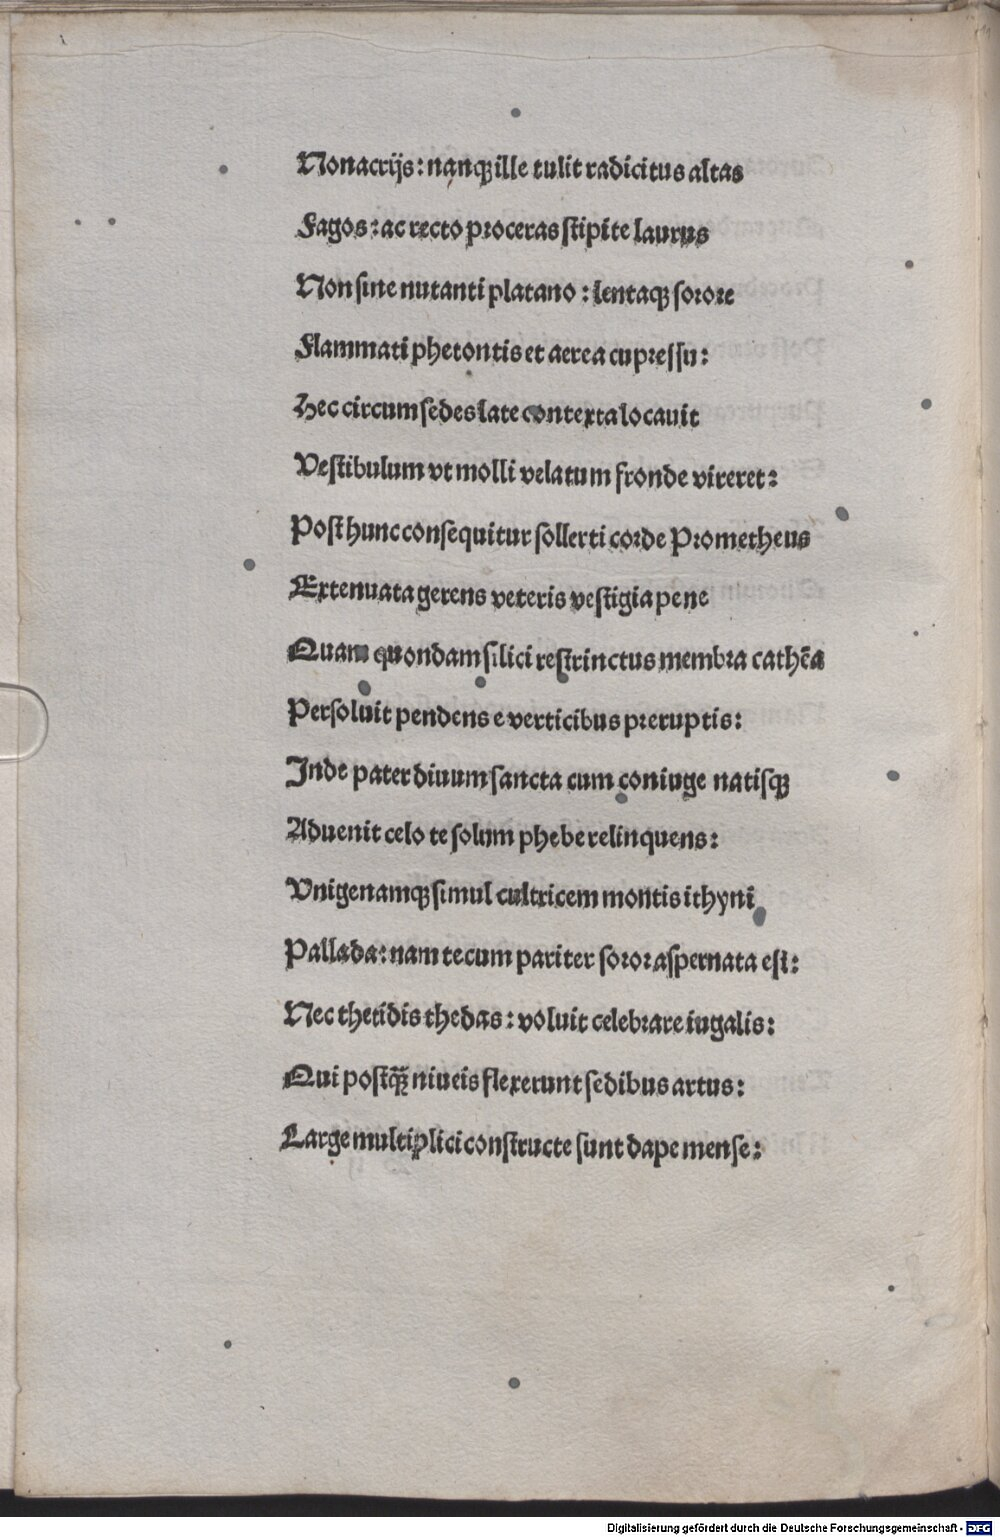 Nonacrijs: nanqꝫ ille tulit radicitus altas
Fagos: ac recto proceras stipite laurus
Non sine nutanti platano: lentaqꝫ sorore
Flammati phetontis et aerea cupressu:
Hec circum sedes late contexta locauit
Vestibulum vt molli velatum fronde vireret:
Post hunc consequitur sollerti corde Prometheus
Extenuata gerens veteris vestigia pene
Quam quondam silici restrinctus membra cathēa
Persoluit pendens e verticibus preruptis:
Inde pater diuum sancta cum coniuge natisqꝫ
Aduenit celo te solum phebe relinquens:
Vnigenamqꝫ simul cultricem montis ithynī
Pallada: nam tecum pariter soror aspernata est:
Nec thetidis thedas: voluit celebrare iugalis:
Qui postq̄ꝫ niueis flexerunt sedibus artus:
Large multiplici constructe sunt dape mense:
Digitalisierung gefördert durch die Deutsche Forschungsgemeinschaft - DFG